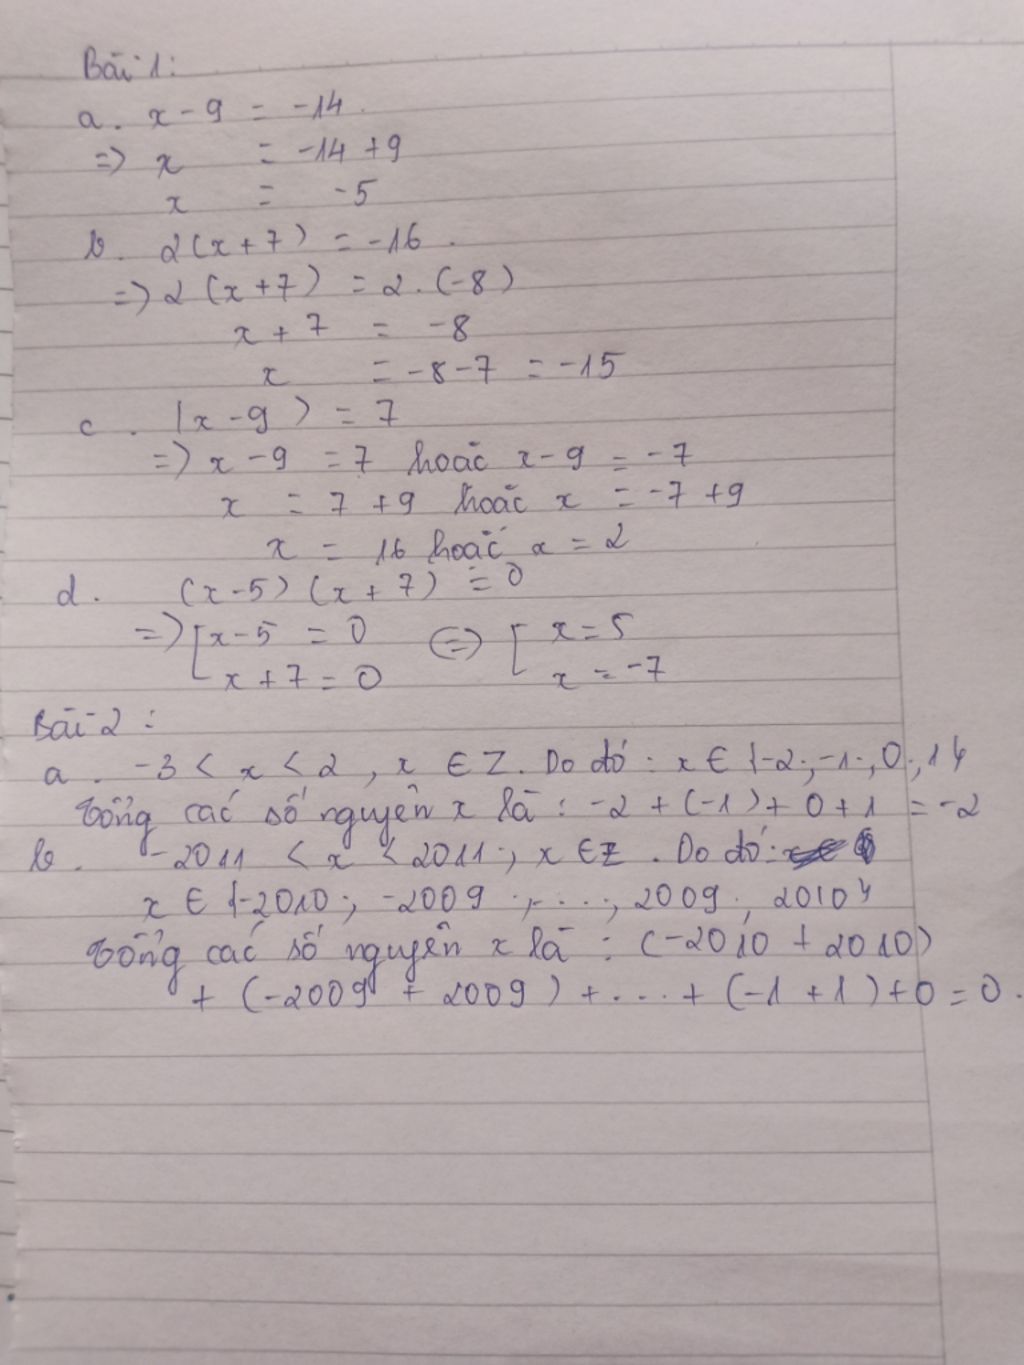 Bài 1:
a. x - 9 = -14.
=> x = -14 + 9
x = -5
b. 2(x + 7) = -16.
=> 2(x + 7) = 2.(-8)
x + 7 = -8
x = -8 - 7 = -15
c. |x - 9| = 7
=> x - 9 = 7 hoặc x - 9 = -7
x = 7 + 9 hoặc x = -7 + 9
x = 16 hoặc x = 2
d. (x - 5)(x + 7) = 0
=> [ x - 5 = 0 <=> [ x = 5
x + 7 = 0 x = -7
Bài 2:
a. -3 < x < 2, x ∈ Z. Do đó: x ∈ {-2; -1; 0; 1}
Tổng các số nguyên x là: -2 + (-1) + 0 + 1 = -2
b. -2011 < x < 2011; x ∈ Z. Do đó:
x ∈ {-2010; -2009; ....; 2009; 2010}
Tổng các số nguyên x là: (-2010 + 2010)
+ (-2009 + 2009) + .... + (-1 + 1) + 0 = 0.